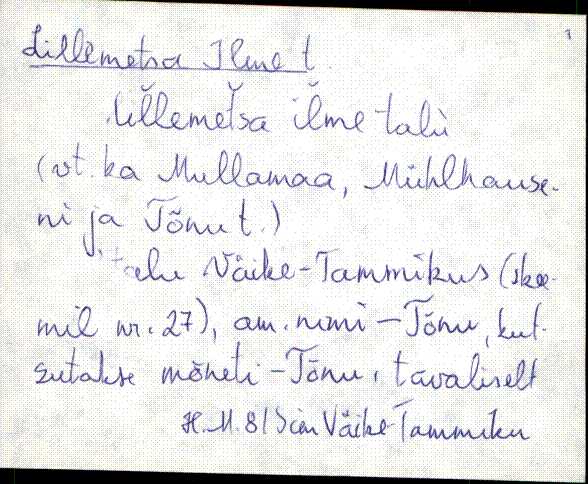 Lillemetsa Ilme t.
lĭllemet̆sa ĭlme talu
(vt. ka Mullamaa, Mühlhause-
ni ja Tõnu t.)
talu Väike-Tammikus (skee-
mil nr. 27), am. nimi – Tõnu, kut-
sutakse mõneti – Tõnu, tavaliselt
H. M. 81 Väike-Tammiku